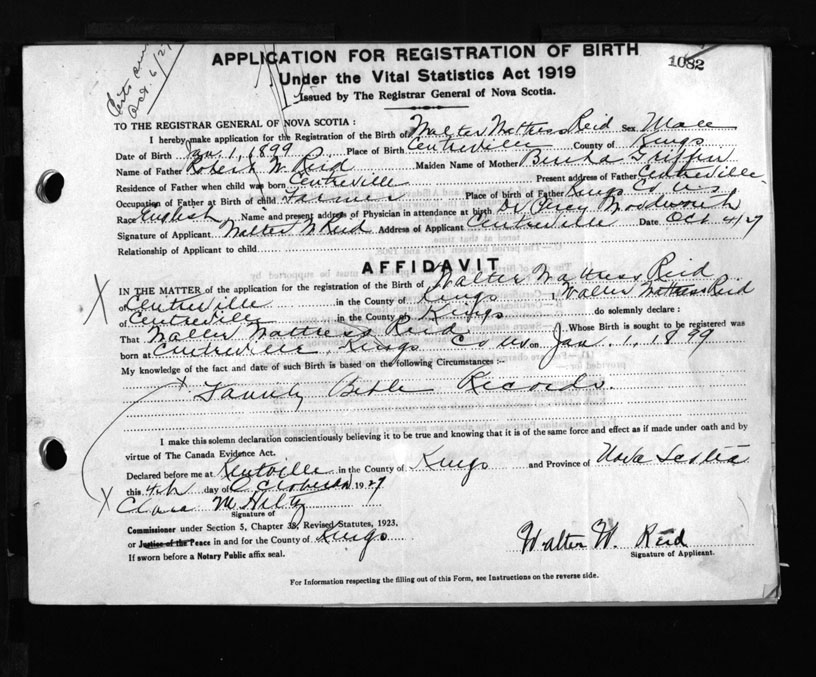 Certs
Oct 6/27
APPLICATION FOR REGISTRATION OF BIRTH
1082
Under the Vital Statistics Act 1919
Issued by The Registrar General of Nova Scotia.
TO THE REGISTRAR GENERAL OF NOVA SCOTIA :
I hereby make application for the Registration of the Birth of Walter Wattress Reid Sex Male
Date of Birth Jan. 1, 1899 Place of Birth Centreville County of Kings
Name of Father Robert W. Reid Maiden Name of Mother Bertha Griffin
Residence of Father when child was born Centreville Present address of Father Centreville
Occupation of Father at Birth of child Farmer Place of birth of Father Kings Co NS
Race English Name and present address of Physician in attendance at birth Dr Percy Woodworth
Signature of Applicant Walter W Reid Address of Applicant Centreville Date Oct 4/27
Relationship of Applicant to child
AFFIDAVIT
IN THE MATTER of the application for the registration of the Birth of Walter Wattress Reid
of Centreville in the County of Kings I, Walter Wattress Reid
of Centreville in the County of Kings do solemnly declare :
That Walter Wattress Reid Whose Birth is sought to be registered was
born at Centreville Kings Co NS on Jan. 1, 1899
My knowledge of the fact and date of such Birth is based on the following Circumstances :-
X Family Bible Records
I make this solemn declaration conscientiously believing it to be true and knowing that it is of the same force and effect as if made under oath and by
virtue of The Canada Evidence Act.
Declared before me at Kentville in the County of Kings and Province of Nova Scotia
this 4th day of October 1927
X Clara M
Signature of
Commissioner under Section 5, Chapter 38, Revised Statutes, 1923,
or Justice of the Peace in and for the County of Kings
Walter W. Reid
If sworn before a Notary Public affix seal.
Signature of Applicant.
For Information respecting the filling out of this Form, see Instructions on the reverse side.